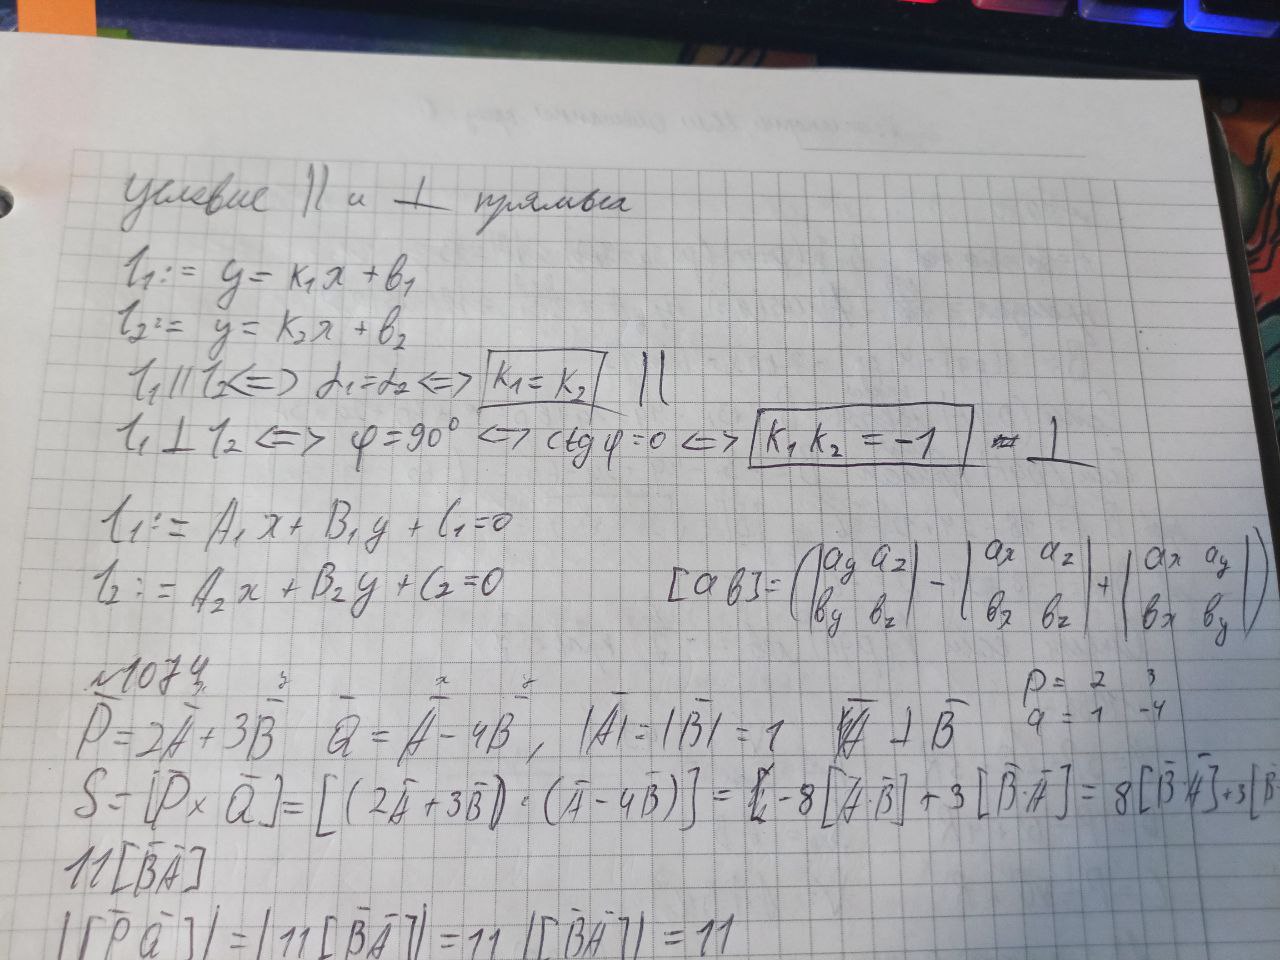 Условие || и ⊥ прямых
l₁:= y = k₁x + b₁
l₂:= y = k₂x + b₂
l₁ || l₂ <=> α₁ = α₂ <=> k₁ = k₂ ||
l₁ ⊥ l₂ <=> φ = 90° <=> ctg φ = 0 <=> k₁ k₂ = -1 - ⊥
l₁:= A₁x + B₁y + C₁ = 0
l₂:= A₂x + B₂y + C₂ = 0
[a b] = (|a_y a_z; b_y b_z| - |a_x a_z; b_x b_z| + |a_x a_y; b_x b_y|)
№1074
P̄ = 2Ā + 3B̄ Q̄ = Ā - 4B̄, |Ā| = |B̄| = 1 Ā ⊥ B̄
p = 2 3
q = 1 -4
S = [P̄ × Q̄] = [(2Ā + 3B̄) · (Ā - 4B̄)] = -8[Ā·B̄] + 3[B̄·Ā] = 8[B̄ Ā] + 3[B̄
11[B̄Ā]
|[P̄ Q̄]| = |11[B̄Ā]| = 11 |[B̄Ā]| = 11